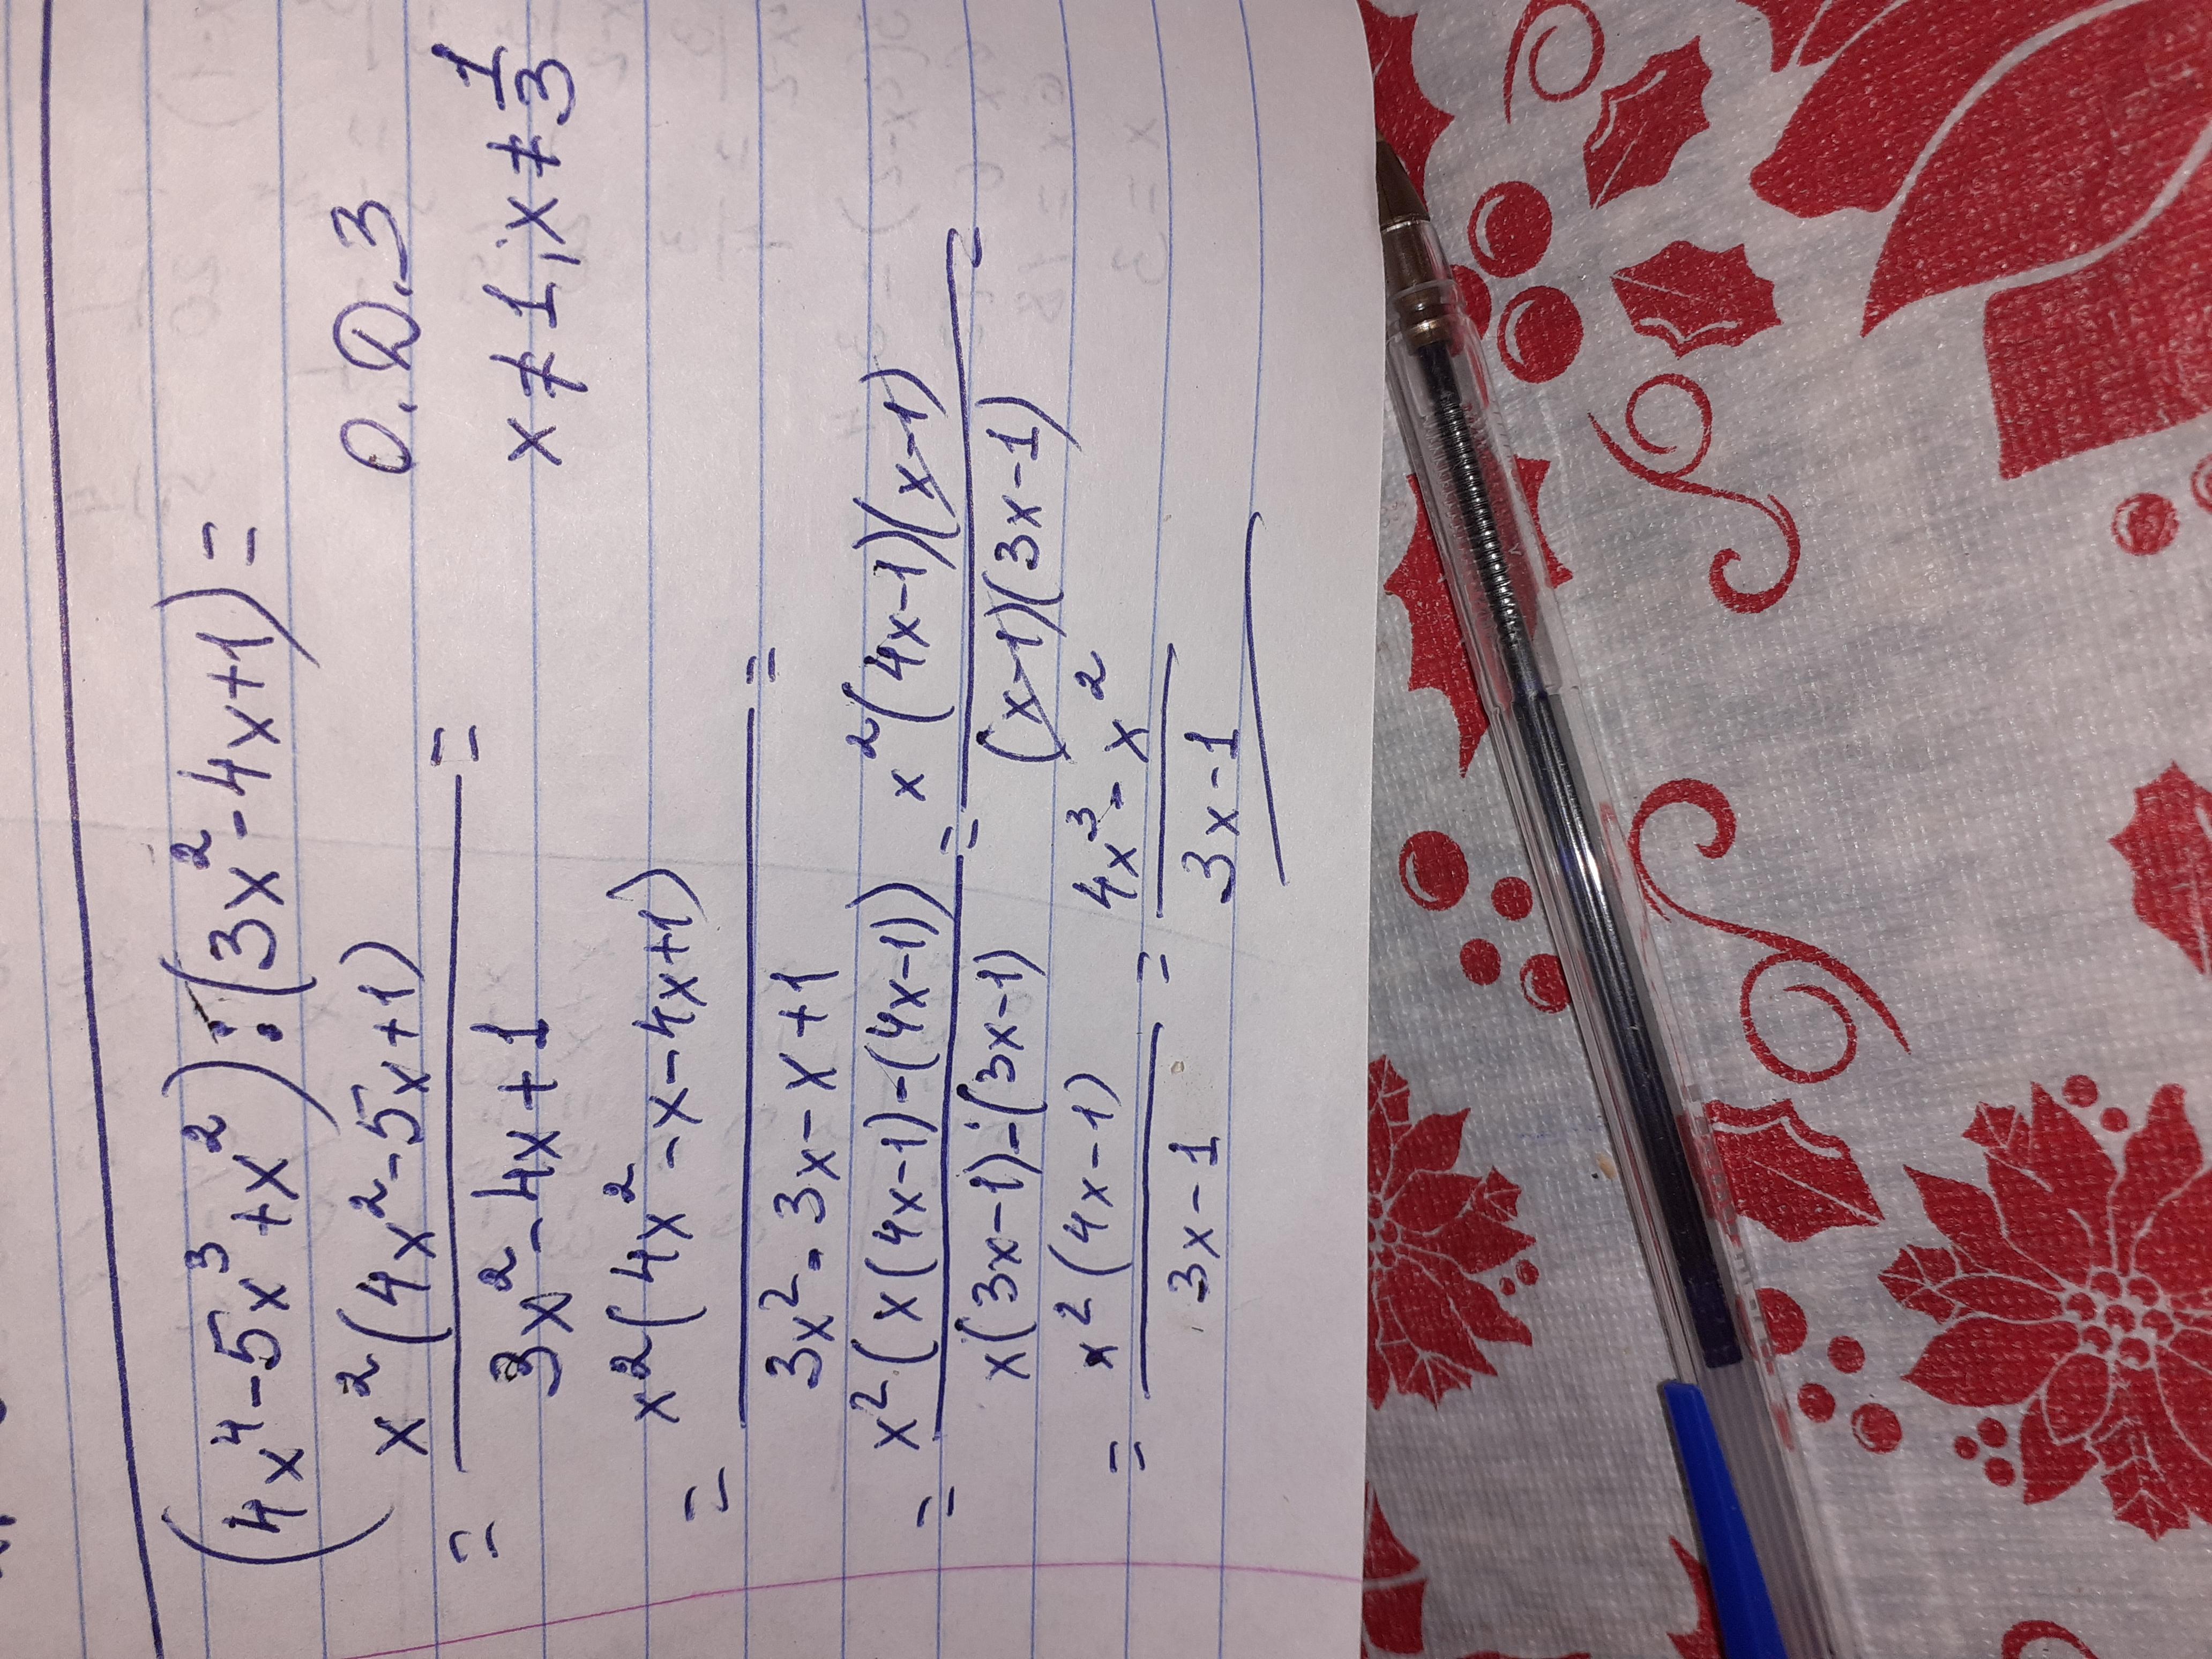 (4x⁴-5x³+x²):(3x²-4x+1)=
= x²(4x²-5x+1) / 3x²-4x+1 =
О.Д.З
x≠1, x≠1/3
= x²(4x²-x-4x+1) / 3x²-3x-x+1 =
= x²(x(4x-1)-(4x-1)) / x(3x-1)-(3x-1) = x²(4x-1)(x-1) / (x-1)(3x-1) =
= x²(4x-1) / 3x-1 = 4x³-x² / 3x-1